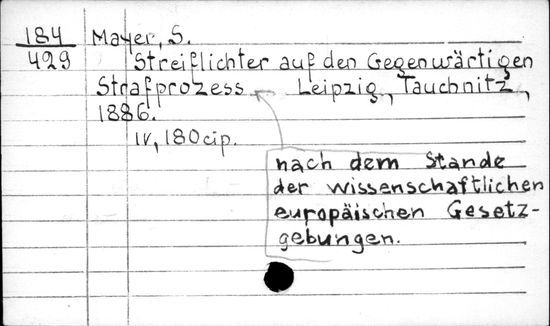 184 Mayer, S.
429 Streiflichter auf den Gegenwärtigen
Strafprozess Leipzig, Tauchnitz,
1886.
IV, 180 cip.
nach dem Stande
der wissenschaftlichen
europäischen Gesetz-
gebungen.